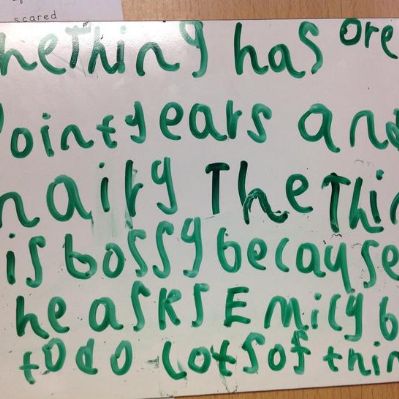 scared
hething has ore
ointy ears and
hairy The Thin
is bossy because
he asks Emily b
to do lots of thin